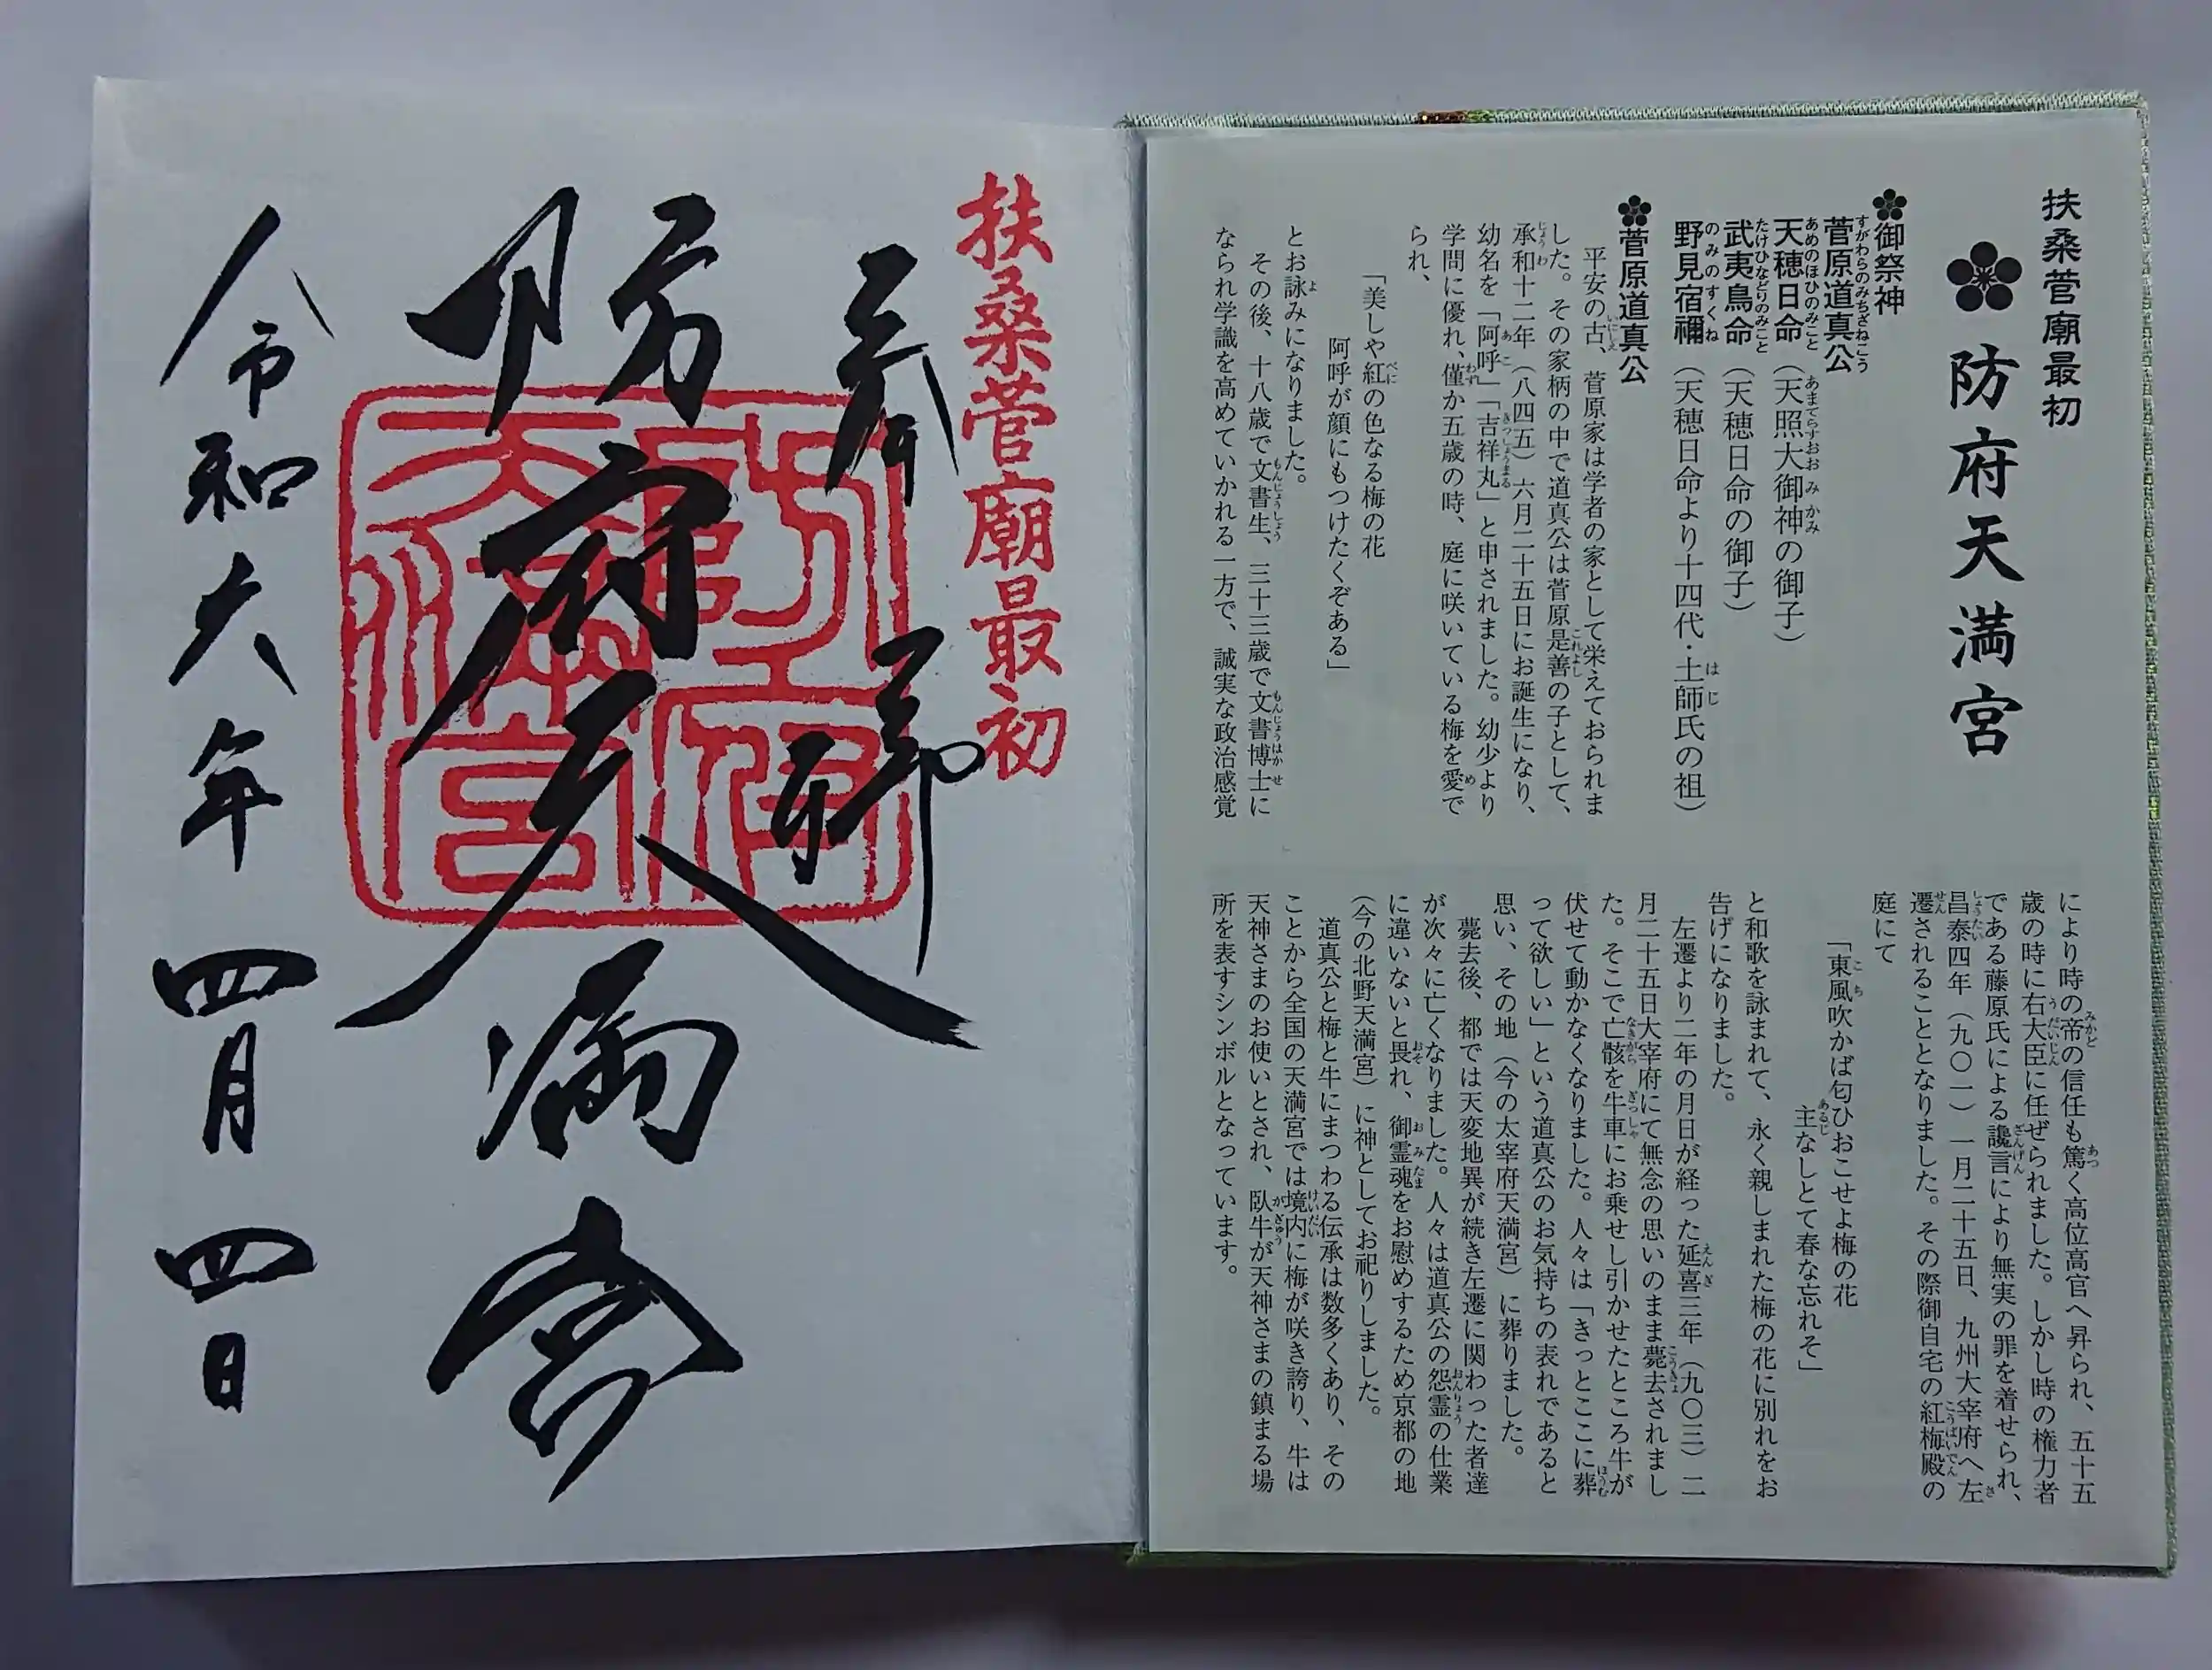 扶桑菅廟最初
防府天満宮
御祭神
菅原道真公
天穂日命（天照大御神の御子）
武夷鳥命（天穂日命の御子）
野見宿禰（天穂日命より十四代・土師氏の祖）
菅原道真公
平安の古、菅原家は学者の家として栄えておられま
した。その家柄の中で道真公は菅原是善の子として、
承和十二年（八四五）六月二十五日にお誕生になり、
幼名を「阿呼」「吉祥丸」と申されました。幼少より
学問に優れ、僅か五歳の時、庭に咲いている梅を愛で
られ、
「美しや紅の色なる梅の花
阿呼が顔にもつけたくぞある」
とお詠みになりました。
その後、十八歳で文書生、三十三歳で文書博士に
なられ学識を高めていかれる一方で、誠実な政治感覚
により時の帝の信任も篤く高位高官へ昇られ、五十五
歳の時に右大臣に任ぜられました。しかし時の権力者
である藤原氏による讒言により無実の罪を着せられ、
昌泰四年（九〇一）一月二十五日、九州大宰府へ左
遷されることとなりました。その際御自宅の紅梅殿の
庭にて
「東風吹かば匂ひおこせよ梅の花
主なしとて春な忘れそ」
と和歌を詠まれて、永く親しまれた梅の花に別れをお
告げになりました。
左遷より二年の月日が経った延喜三年（九〇三）二
月二十五日大宰府にて無念の思いのまま薨去されまし
た。そこで亡骸を牛車にお乗せし引かせたところ牛が
伏せて動かなくなりました。人々は「きっとここに葬
って欲しい」という道真公のお気持ちの表れであると
思い、その地（今の太宰府天満宮）に葬りました。
薨去後、都では天変地異が続き左遷に関わった者達
が次々に亡くなりました。人々は道真公の怨霊の仕業
に違いないと畏れ、御霊魂をお慰めするため京都の地
（今の北野天満宮）に神としてお祀りしました。
道真公と梅と牛にまつわる伝承は数多くあり、その
ことから全国の天満宮では境内に梅が咲き誇り、牛は
天神さまのお使いとされ、臥牛が天神さまの鎮まる場
所を表すシンボルとなっています。
扶桑菅廟最初
奉拝
防府天満宮
令和六年四月四日